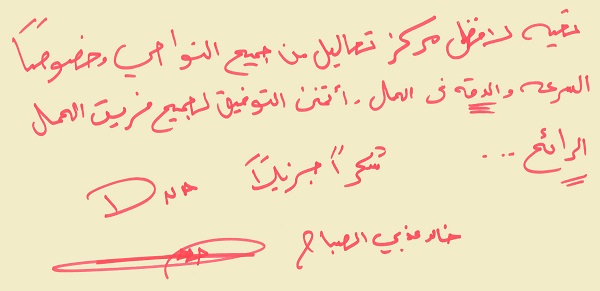 تحيه لافضل مركز تحاليل من جميع النواحي وخصوصاً
السرعه والدقه فى العمل . وأتمنى التوفيق لجميع فريق العمل
الرائع ...
شكراً جزيلاً
خالد عذبي الصباح